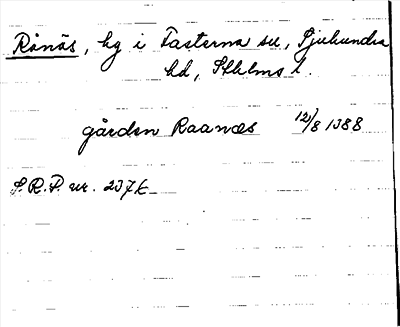 Rånäs, hg i Fasterna sn, Sjuhundra
hd, Sthlms l.
gården Raanæs 12/8 1388
S.R.P. nr. 2374